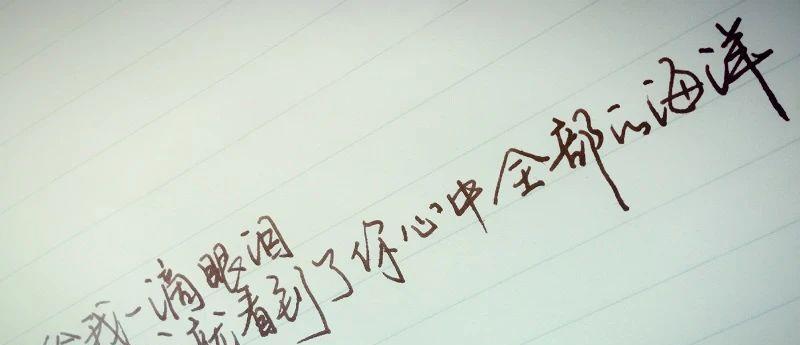 给我一滴眼泪
一就看到了你心中全部的海洋